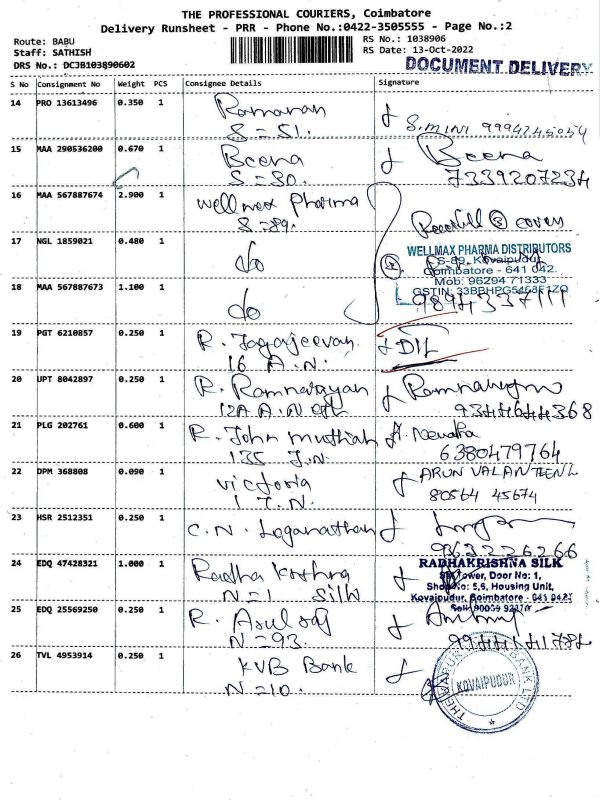 THE PROFESSIONAL COURIERS, Coimbatore
Delivery Runsheet - PRR - Phone No.:0422-3505555 - Page No.:2
Route: BABU
RS No.: 1038906
Staff: SATHISH
RS Date: 13-Oct-2022
DRS No.: DCJB103890602
DOCUMENT DELIVERY
S No Consignment No Weight PCS Consignee Details Signature
14 PRO 13613496 0.350 1 Ramanan
S=51. S.MINI
15 MAA 290536200 0.670 1 Beena Beena
S=30. 7339207234
16 MAA 567887674 2.900 1 Wellmax pharma
S=89. cover
17 NGL 1859021 0.480 1 do
WELLMAX PHARMA DISTRIBUTORS
S-89, Kovaipudur
Coimbatore - 641 042.
Mob: 96294 71333
18 MAA 567887673 1.100 1 do
9894337111
19 PGT 6210857 0.250 1 R. Jagajeevan
16 A.N.
20 UPT 8042897 0.250 1 R. Ramnarayan
12A A.N
21 PLG 202761 0.600 1 R. John muthiah
135 J.N. 6380479764
22 DPM 368808 0.090 1 victoria ARUN VALANTENL
1 J.N. 80564 45674
23 HSR 2512351 0.250 1 C.N. Loganathan
9363226266
24 EDQ 47428321 1.000 1 Radha Krishna
N=1 Silk
RADHAKRISHNA SILK
Tower, Door No: 1,
Shop No: 5,6, Housing Unit,
Kovaipudur, Coimbatore - 641 042
25 EDQ 25569250 0.250 1 R. Arulraj
N=93.
26 TVL 4953914 0.250 1 KVB Bank
N=10.
KOVAIPUDUR
BANK LTD